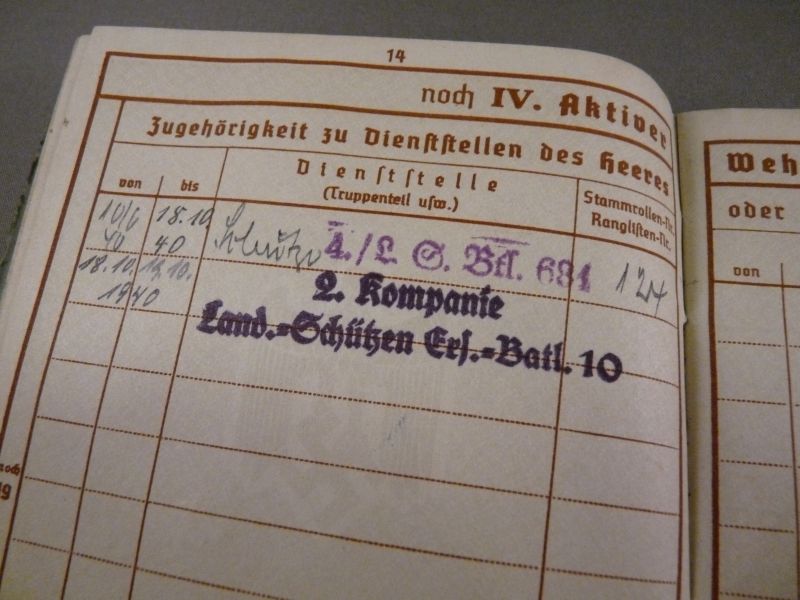 14
noch IV. Aktiver
Zugehörigkeit zu Dienststellen des Heeres
von
bis
Dienststelle
(Truppenteil usw.)
Stammrollen-Nr.
Ranglisten-Nr.
10/6 18.10.
40 40
4./L. S. Btl. 681
124
18.10.
1940
2. Kompanie
Land.-Schützen Ers.-Batl. 10
noch
Weh
oder
von